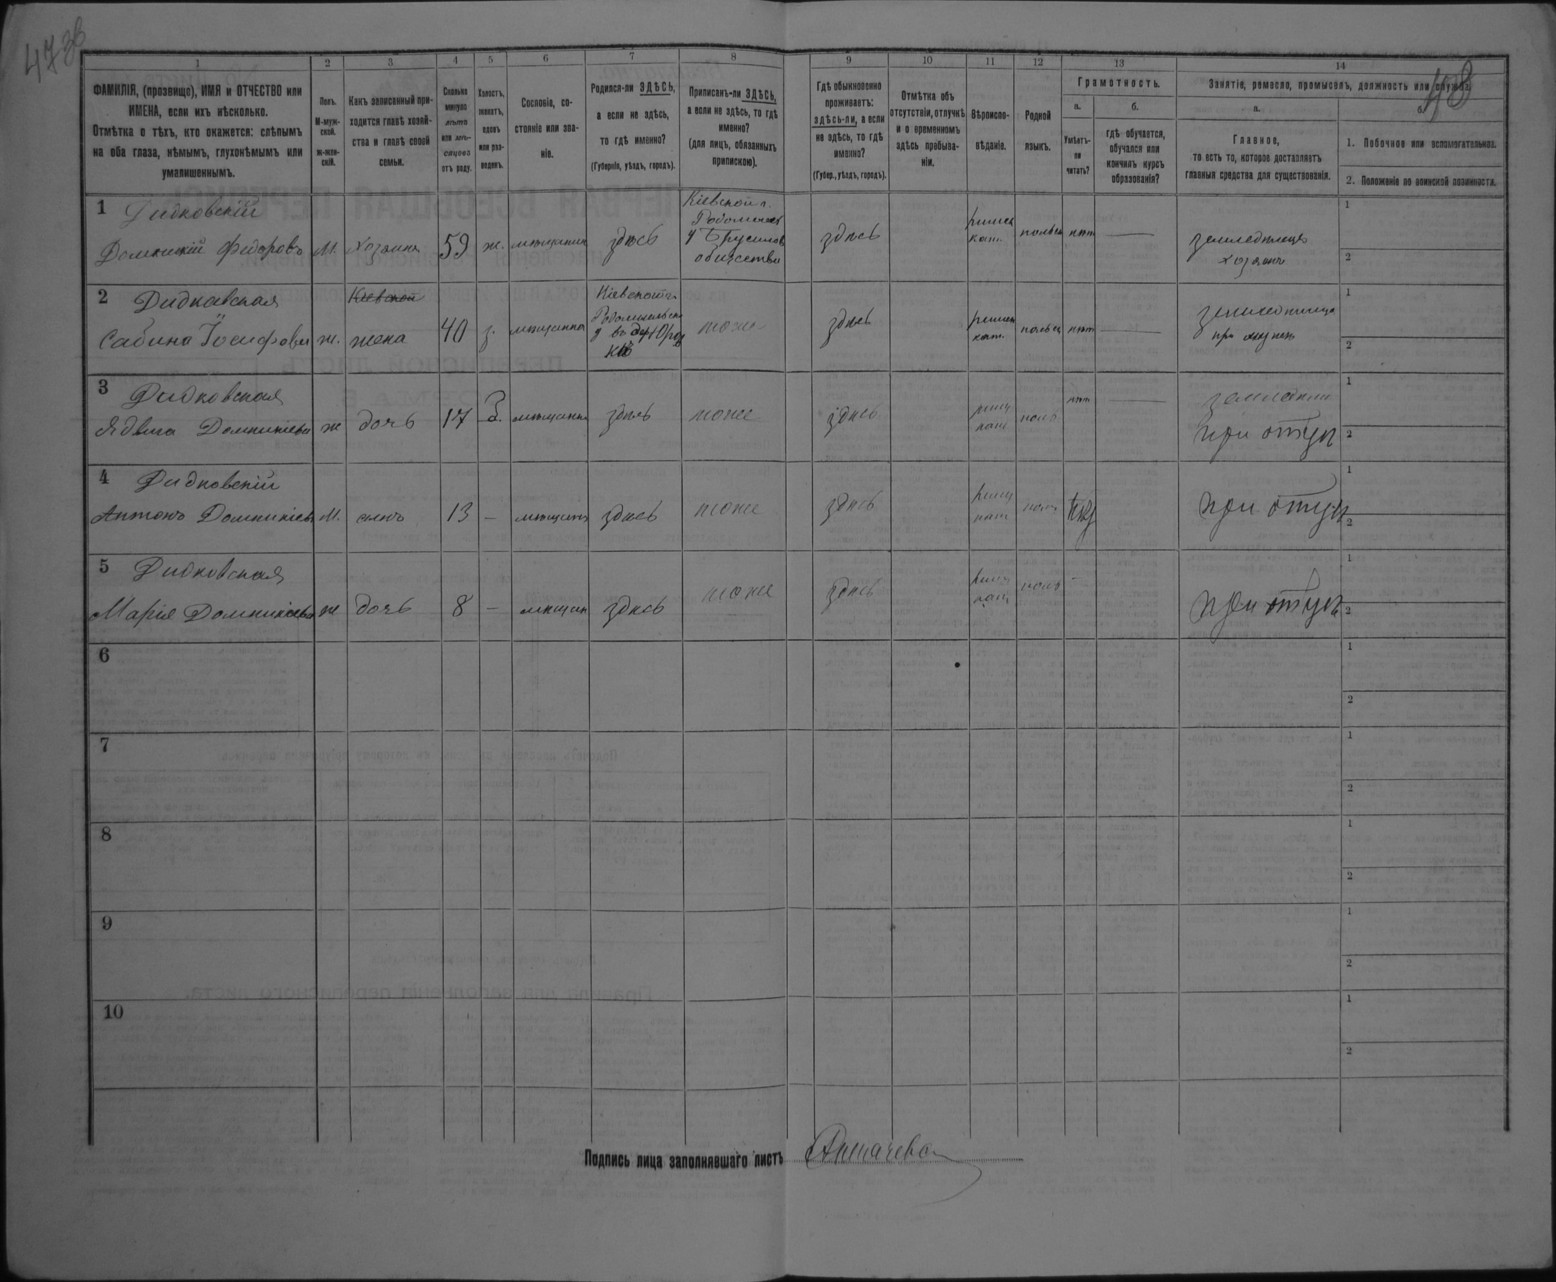 47 об
48
1
2
3
4
5
6
7
8
9
10
11
12
13
14
ФАМИЛІЯ, (прозвище), ИМЯ и ОТЧЕСТВО или
ИМЕНА, если ихъ нѣсколько.
Отмѣтка о тѣхъ, кто окажется: слѣпымъ
на оба глаза, нѣмымъ, глухонѣмымъ или
умалишеннымъ.
Полъ.
М-муж-
ской.
ж-жен-
скій.
Какъ записанный при-
ходится главѣ хозяй-
ства и главѣ своей
семьи.
Сколько
минуло
лѣтъ
или мѣс-
яцевъ
отъ роду.
Холостъ,
женатъ,
вдовъ
или раз-
веденъ.
Сословіе, со-
стояніе или зва-
ніе.
Родился-ли ЗДѢСЬ,
а если не здѣсь,
то гдѣ именно?
(Губернія, уѣздъ, городъ).
Приписанъ-ли ЗДѢСЬ,
а если не здѣсь, то гдѣ
именно?
(для лицъ, обязанныхъ
припискою).
Гдѣ обыкновенно
проживаетъ:
здѣсь-ли, а если
не здѣсь, то гдѣ
именно?
(Губер., уѣздъ, городъ).
Отмѣтка объ
отсутствіи, отлучкѣ
и о временномъ
здѣсь пребыва-
ніи.
Вѣроиспо-
вѣданіе.
Родной
языкъ.
Грамотность.
а.
Умѣетъ-
ли
читать?
б.
гдѣ обучается,
обучался или
кончилъ курсъ
образованія?
Занятіе, ремесло, промыселъ, должность или служба.
а.
Главное,
то есть то, которое доставляетъ
главныя средства для существованія.
1. Побочное или вспомогательное.
2. Положеніе по воинской повинности.
1 Дидковскій
Доминикій Федоровъ М. хозяинъ 59 ж. мѣщанинъ здѣсь
Кіевской г.
Радомысл
у Брусилов
общества
здѣсь
римск
кат.
польск нѣтъ
земледѣлецъ
хозяинъ
1
2
2 Дидковская
Сабина Іосифова ж.
Кіевской
жена 40 з. мѣщанка
Кіевской г.
Радомысльск
тоже здѣсь
римск
кат.
польск нѣтъ
земледѣлица
при мужѣ
1
2
3 Дидковская
Ядвига Доминикова ж дочь 17 д. мѣщанка здѣсь тоже здѣсь
римск
кат
поль нѣтъ
при отцѣ
1
2
4 Дидковскій
Антонъ Доминиковъ М. сынъ 13 – мѣщанинъ здѣсь тоже здѣсь
римск
кат
поль нѣтъ
при отцѣ
1
2
5 Дидковская
Марія Доминикова ж дочь 8 – мѣщан здѣсь тоже здѣсь
римск
кат
поль –
при отцѣ
1
2
6
1
2
7
1
2
8
1
2
9
1
2
10
1
2
Подпись лица заполнявшаго листъ